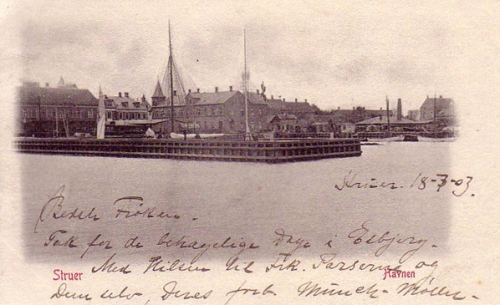 Struer. 18-3-03.
Bedste Frøken.
Tak for de behagelige Dage i Esbjerg.
Struer
Havnen
Med Hilsen til Frk. og
Dem selv, Deres forb Munch-Møller